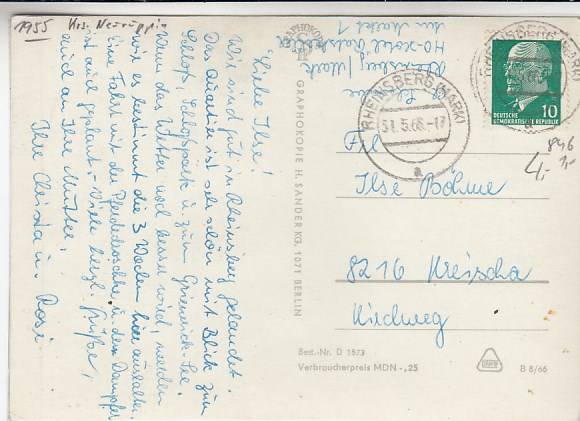 1955 Krs. Neuruppin
Liebe Ilse!
Wir sind gut in Rheinsberg gelandet.
Das Quartier ist sehr schön mit Blick zum
Schloß, Schloßpark u. zum Grienerick-See.
Wenn das Wetter noch besser wird, werden
wir es bestimmt die 3 Wochen hier aushalten.
Eine Fahrt mit der Pferdedroschke u. dem Dampfer
ist auch geplant. – Viele herzl. Grüße,
auch an Ihre Mutter,
Ihre Christa u. Rosi
Rheinsberg/Mark
HO-Hotel Ratskeller
Am Markt 1
GRAPHOKOPIE H. SANDER KG, 1071 BERLIN
RHEINSBERG (MARK)
31.5.66.-17
a
RHEINSBERG (MARK)
a
10
DEUTSCHE
DEMOKRATISCHE REPUBLIK
846
4,-
1,-
Frl.
Ilse Böhme
8216 Kreischa
Kirchweg
Best.-Nr. D 1573
Verbraucherpreis MDN -,25
B 8/66